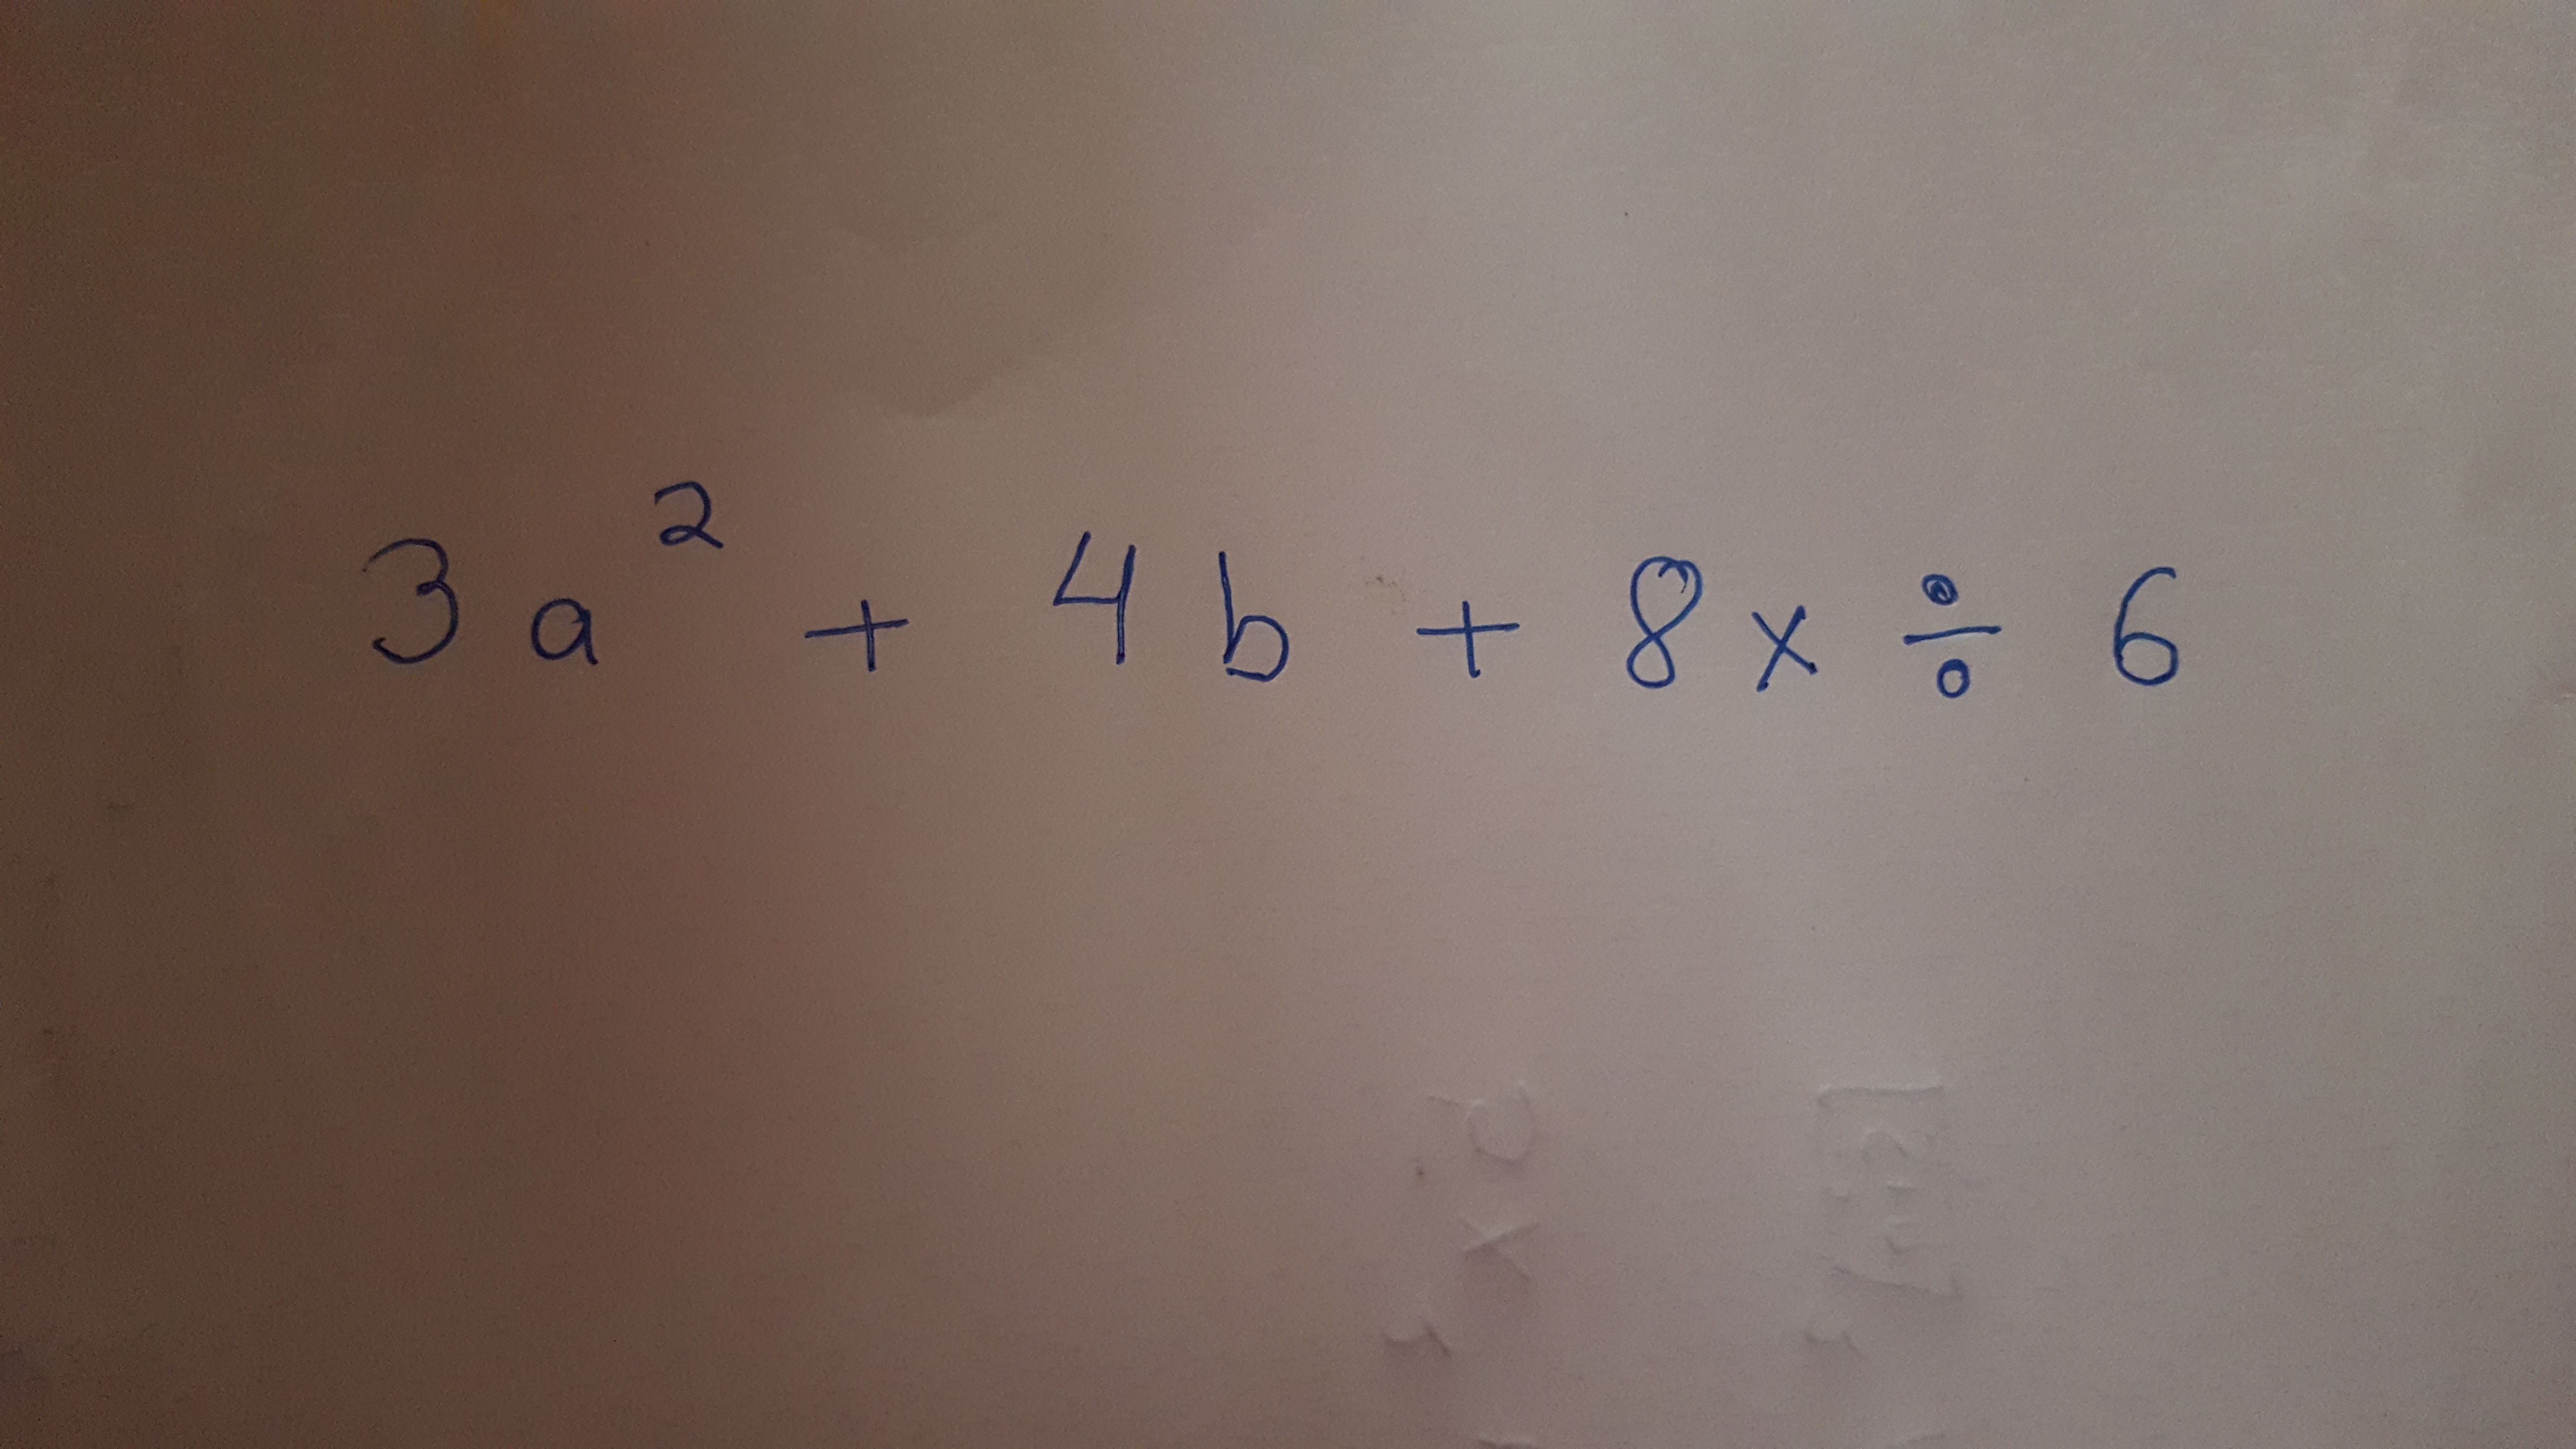 3a² + 4b + 8x ÷ 6